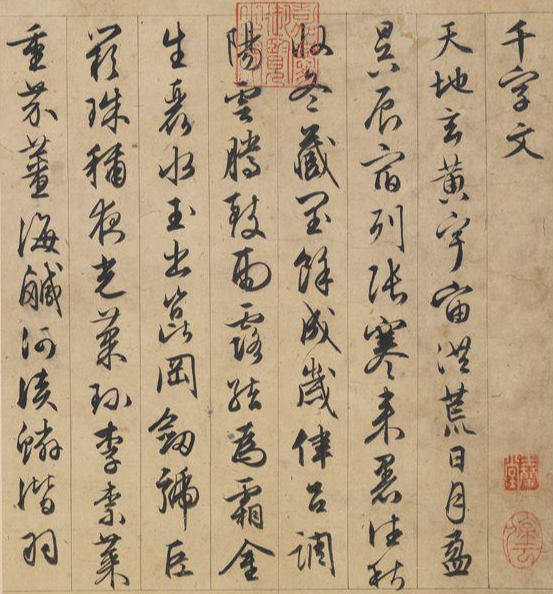 千字文
天地玄黃宇宙洪荒日月盈
昃辰宿列張寒來暑往秋
收冬藏閏餘成歲律呂調
陽雲騰致雨露結為霜金
生麗水玉出崑岡劍號巨
闕珠稱夜光菓珍李柰菜
重芥薑海鹹河淡鱗潛羽